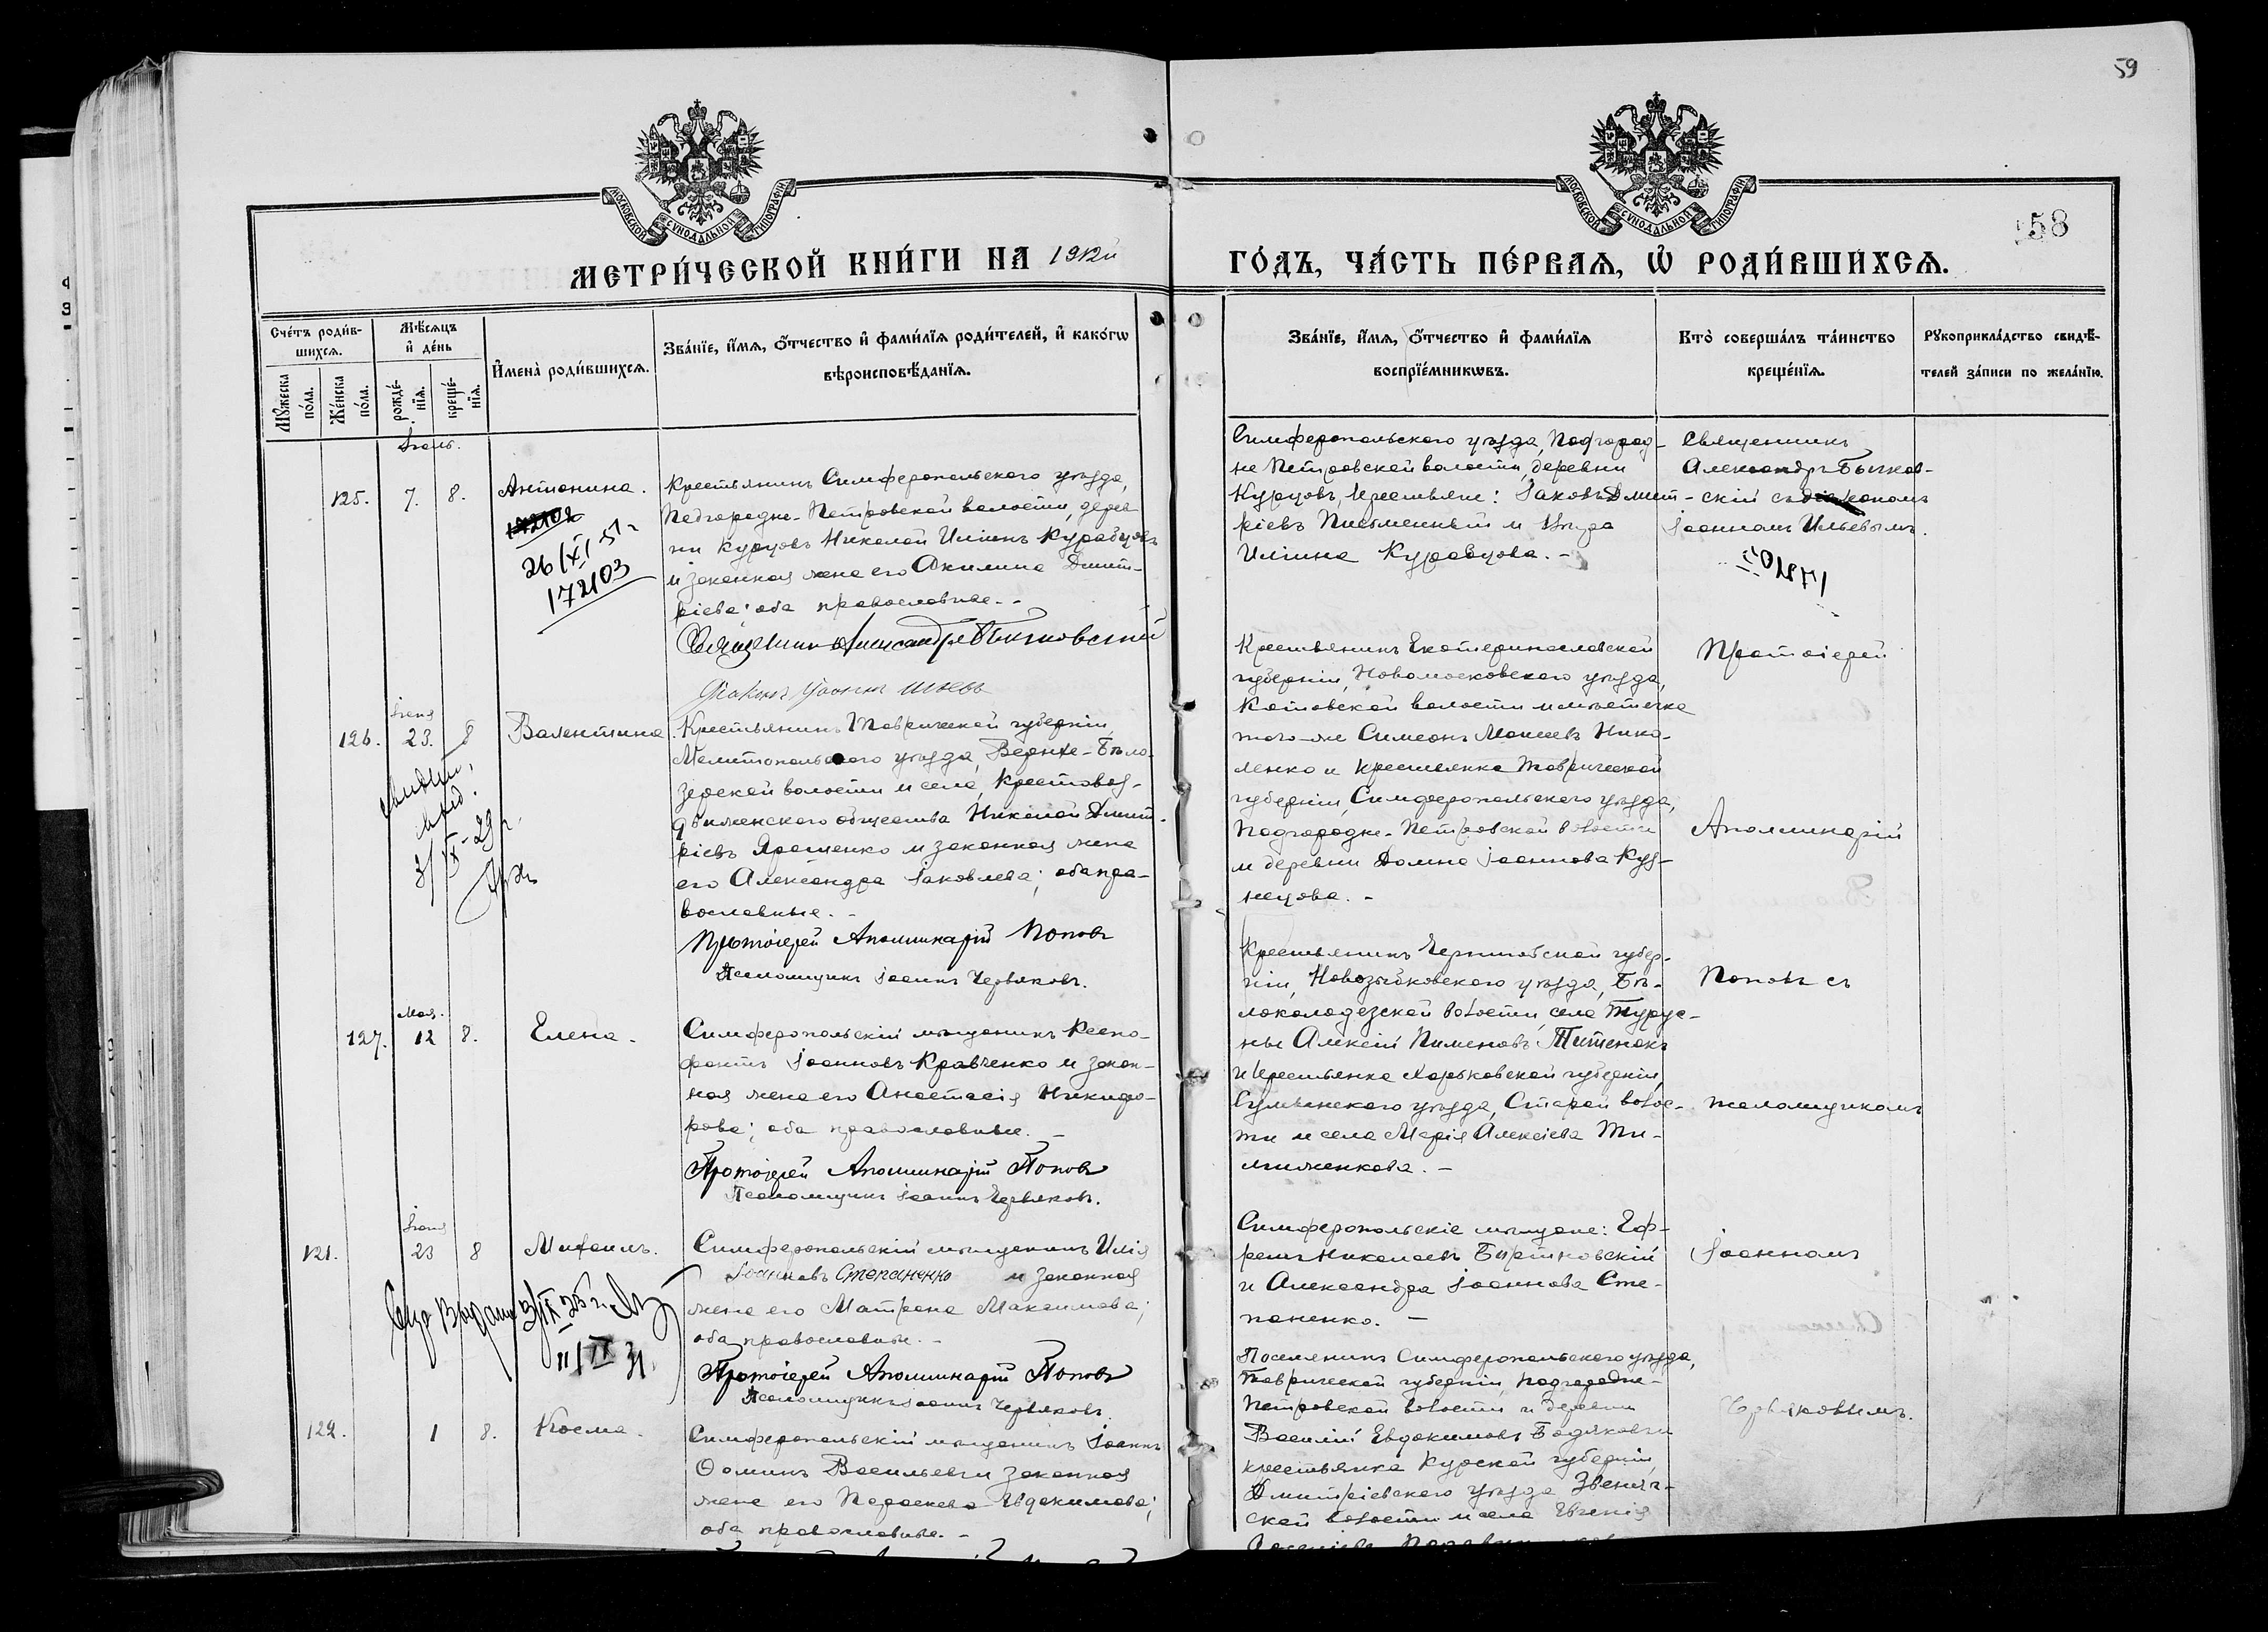 59
МОСКОВСКОЙ СѴНОДАЛЬНОЙ ТИПОГРАФІИ
МОСКОВСКОЙ СѴНОДАЛЬНОЙ ТИПОГРАФІИ
58
МЕТРИ́ЧЕСКОЙ КНИ́ГИ НА 1912й
ГО́ДЪ, ЧА́СТЬ ПЕ́РВАѦ, Ѡ҆ РОДИ́ВШИХСѦ.
Сче́тъ роди́в-
шихсѧ.
Мꙋ́жеска по́ла.
Же́нска по́ла.
Мѣ́сѧцъ и҆ де́нь
рожде́-
нїѧ.
креще́-
нїѧ.
И҆мена̀ роди́вшихсѧ.
Зва́нїе, и҆́мѧ, ѻ҆́тчество и҆ фами́лїѧ роди́телей, и҆ како́гѡ
вѣроисповѣ́данїѧ.
Зва́нїе, и҆́мѧ, ѻ҆́тчество и҆ фами́лїѧ
воспрїе́мникѡвъ.
Кто̀ соверша́лъ та́инство
креще́нїѧ.
Рꙋкоприкла́дство свидѣ́-
телей за́писи по жела́нїю.
Іюль.
125.
7.
8.
Антонина.
172102
26/XI 51 г
172103
Крестьянинъ Симферопольского уѣзда,
Подгородне-Петровской волости, дерев
ни Курцовъ Николай Иліинъ Куравцовъ
и законная жена его Акилина Димит-
ріева; оба православные. -
Священникъ Александръ Бычковский
Діаконъ Іоаннъ Ильевъ
Симферопольского уѣзда, Подгород-
не Петровской волости, деревни
Курцовъ, крестьяне: Іаковъ Димит-
ріевъ Письменный и
Иліина Куравцова. -
Священникъ
Александръ Бычков-
скій съ діакономъ
Іоанномъ Ильевымъ.
Іюня
126.
23.
8
Валентина
IX - 29 г.
Крестьянинъ Таврической губерніи
Мелитопольского уѣзда, Верхне-Бѣло-
зерской волости и села, Крестовоз-
движенского общества Николай Димит-
ріевъ Ярошенко и законная жена
его Александра Іаковлева; оба пра-
вославные. -
Протоіерей Аполлинарій Поповъ
Псаломщикъ Іоаннъ Червяковъ.
Крестьянинъ Екатеринославской
губерніи, Новомосковского уѣзда,
Котовской волости и мѣстечка
того-же Симеонъ Моисеевъ Нико-
ленко и крестьянка Таврической
губерніи, Симферопольского уѣзда,
Подгородне-Петровской волости
и деревни Домна Іоаннова Куз-
нецова. -
Протоіерей
Аполлинарій
Мая.
127.
12
8.
Елена.
Симферопольскій мѣщанинъ Ксено-
фонтъ Іоанновъ Кравченко и закон-
ная жена его Анастасія Никифо-
рова; оба православные. -
Протоіерей Аполлинарій Поповъ
Псаломщикъ Іоаннъ Червяковъ.
Крестьянинъ Черниговской губер-
ніи, Новозыбковского уѣзда, Бѣ-
локолодезской волости, села Турус-
ны Алексій Пименовъ Титенокъ
и крестьянка Харьковской губерніи,
Сумьянского уѣзда, Старой волос-
ти и села Марія Алексіева Ти-
мшенкова. -
Поповъ съ
псаломщикомъ
Іюня
121.
23
8
Михаилъ.
11/IX 31.
Симферопольскій мѣщанинъ Илія
Іоанновъ Степаненко и законная
жена его Матрона Максимова;
оба православные. -
Протоіерей Аполлинарій Поповъ
Псаломщикъ Іоаннъ Червяковъ.
Симферопольскіе мѣщане: Еф-
ремъ Николаевъ Биртновскій
и Александра Іоаннова Сте-
паненко. -
Іоанномъ
122.
1
8.
Косма.
Симферопольскій мѣщанинъ Іоаннъ
Ѳоминъ Васильевъ и законная
жена его Параскева Евдокимова;
оба православные. -
Поселянинъ Симферопольского уѣзда,
Таврической губерніи, Подгородне-
Петровской волости и деревни
Василій Евдокимовъ Бодяковъ и
крестьянка Курской губерніи,
Дмитріевского уѣзда Звеняч-
ской волости и села Евгенія
Червяковымъ.